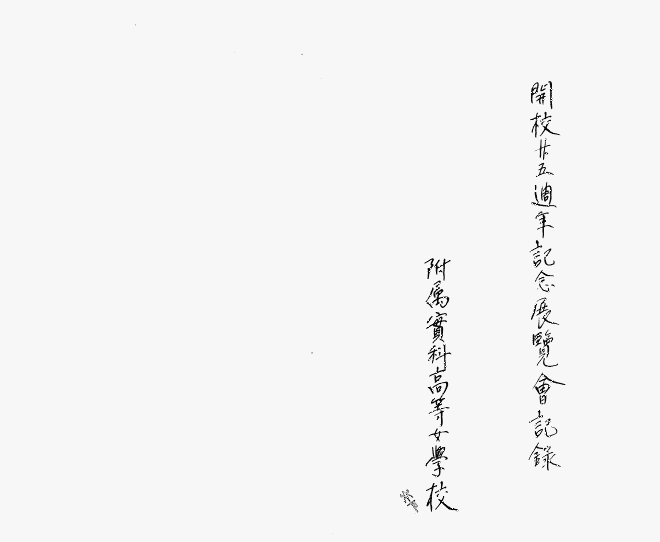 開校廿五週年記念展覽會記録
附属實科高等女學校